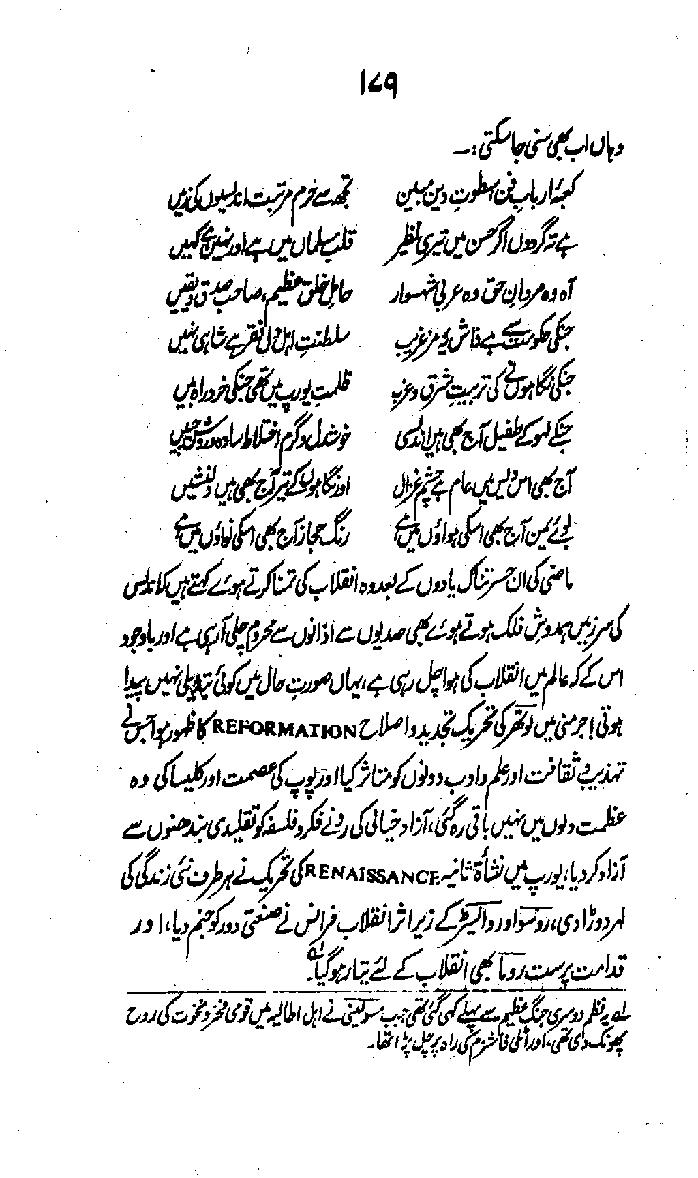 ۱۷۹
وہاں اب بھی سنی جا سکتی:۔
کعبۂ ارباب فن! سطوتِ دین مبین تجھ سے حرم مرتبت اندلسیوں کی زمیں
ہے تہ گردوں اگر حسن میں تیری نظیر قلب مسلماں میں ہے اور نہیں ہے کہیں
آہ وہ مردانِ حق وہ عربی شہسوار حامل خلق عظیم، صاحب صدق ویقیں
جنکی حکومت سے ہے فاش یہ رمز غریب سلطنت اہل دل فقر ہے شاہی نہیں
جنکی نگاہوں نے کی تربیت شرق وغرب ظلمت یورپ میں تھی جنکی خرد راہ بیں
جنکے لہو کے طفیل آج بھی ہیں اندلسی خوشدل وگرم اختلاط سادہ و روشن جبیں
آج بھی اس دیس میں عام ہے چشم غزال اور نگاہوں کے تیر آج بھی ہیں دلنشیں
بوئے یمن آج بھی اسکی ہواؤں میں ہے رنگ حجاز آج بھی اسکی نواؤں میں ہے
ماضی کی ان حسرتناک یادوں کے بعد وہ انقلاب کی تمنا کرتے ہوئے کہتے ہیں کہ اندلس
کی سرزمیں ہمدوش فلک ہوتے ہوئے بھی صدیوں سے اذانوں سے محروم چلی آرہی ہے اور باوجود
اس کے کہ عالم میں انقلاب کی ہوا چل رہی ہے، یہاں صورت حال میں کوئی تبدیلی نہیں پیدا
ہوتی! جرمنی میں لوتھر کی تحریک تجدید و اصلاح REFORMATION کا ظہور ہوا جس نے
تہذیب و ثقافت اور علم و ادب دونوں کو متاثر کیا اور پوپ کی عصمت اور کلیسا کی وہ
عظمت دلوں میں نہیں باقی رہ گئی، آزاد خیالی کی رو نے فکر و فلسفہ کو تقلیدی بندھنوں سے
آزاد کر دیا، یورپ میں نشأۃ ثانیہ RENAISSANCE کی تحریک نے ہر طرف نئی زندگی کی
لہر دوڑا دی، روسو اور والٹیر کے زیر اثر انقلاب فرانس نے صنعتی دور کو جنم دیا، اور
قدامت پرست روما بھی انقلاب کے لئے تیار ہو گیا۔ لہ
لہ یہ نظم دوسری جنگ عظیم سے پہلے کہی گئی تھی جب مسولینی نے اہل اطالیہ میں قومی فخر و نخوت کی روح
پھونک دی تھی، اور اٹلی فاشزم کی راہ پر چل پڑا تھا۔